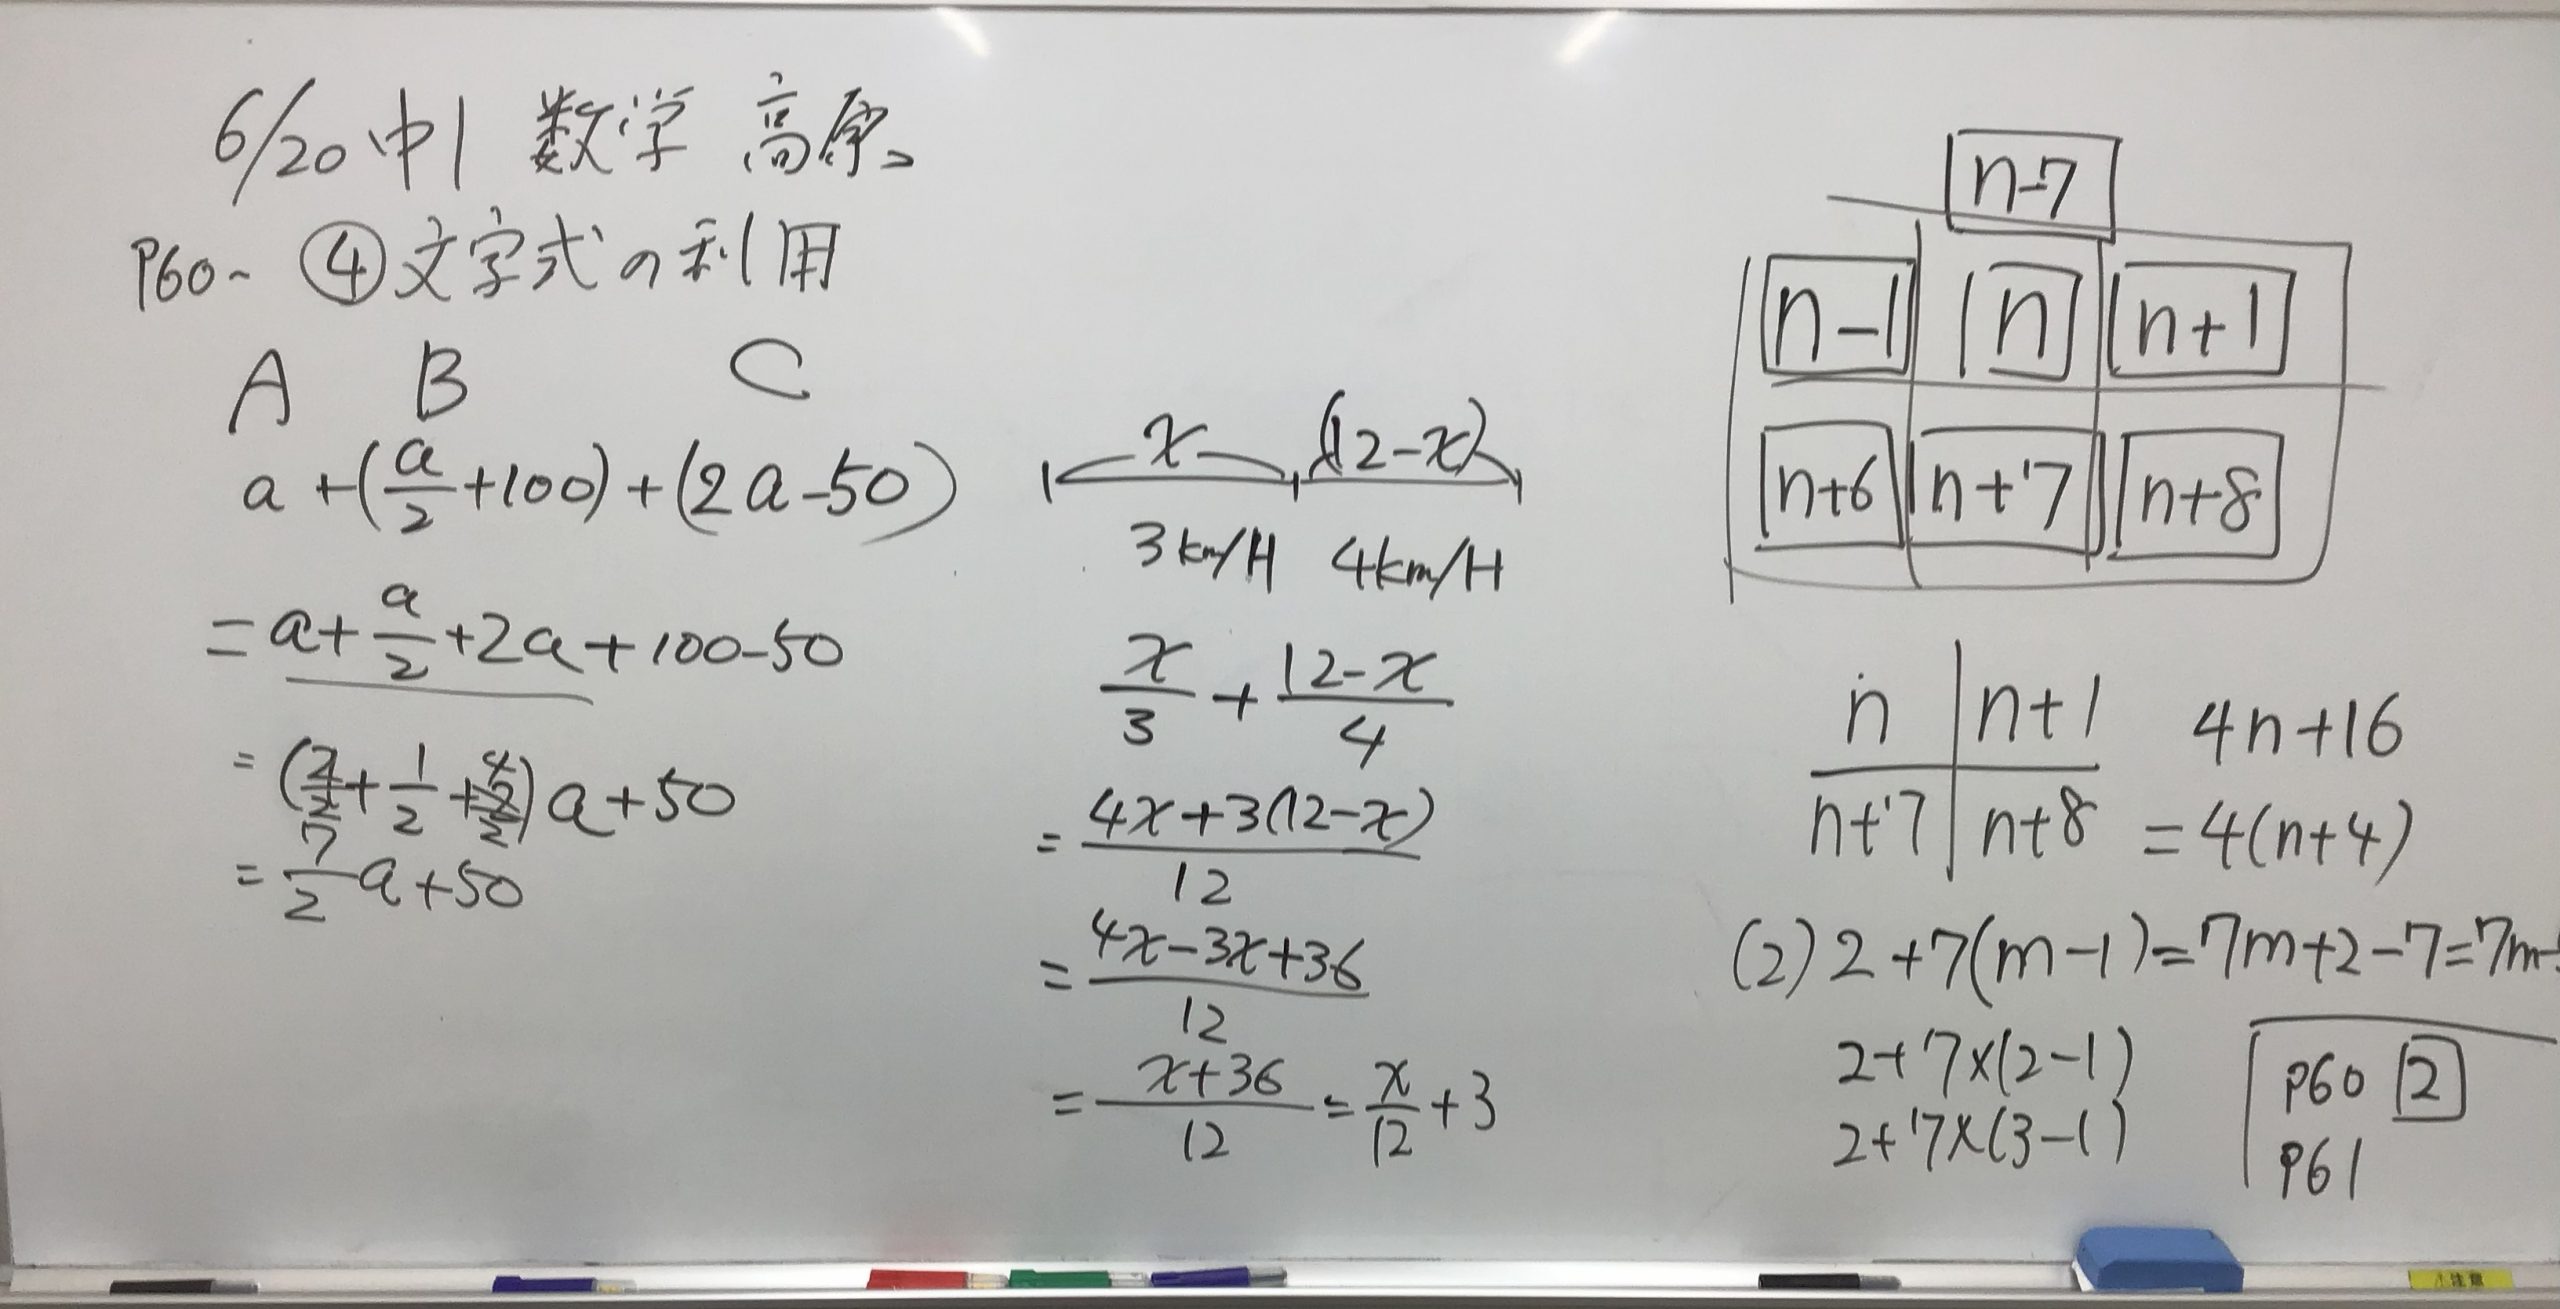 6/20 中1 数学 高原
P60~ ④文字式の利用
A B C
a+(a/2+100)+(2a-50)
=a+a/2+2a+100-50
=(2/2+1/2+4/2)a+50
=7/2a+50
x (12-x)
3km/H 4km/H
x/3+(12-x)/4
=4x+3(12-x)/12
=4x-3x+36/12
=x+36/12=x/12+3
n-7
n-1 n n+1
n+6 n+7 n+8
n n+1 4n+16
n+7 n+8 =4(n+4)
(2)2+7(m-1)=7m+2-7=7m-
2+7×(2-1)
2+7×(3-1)
P60 2
P61
注意